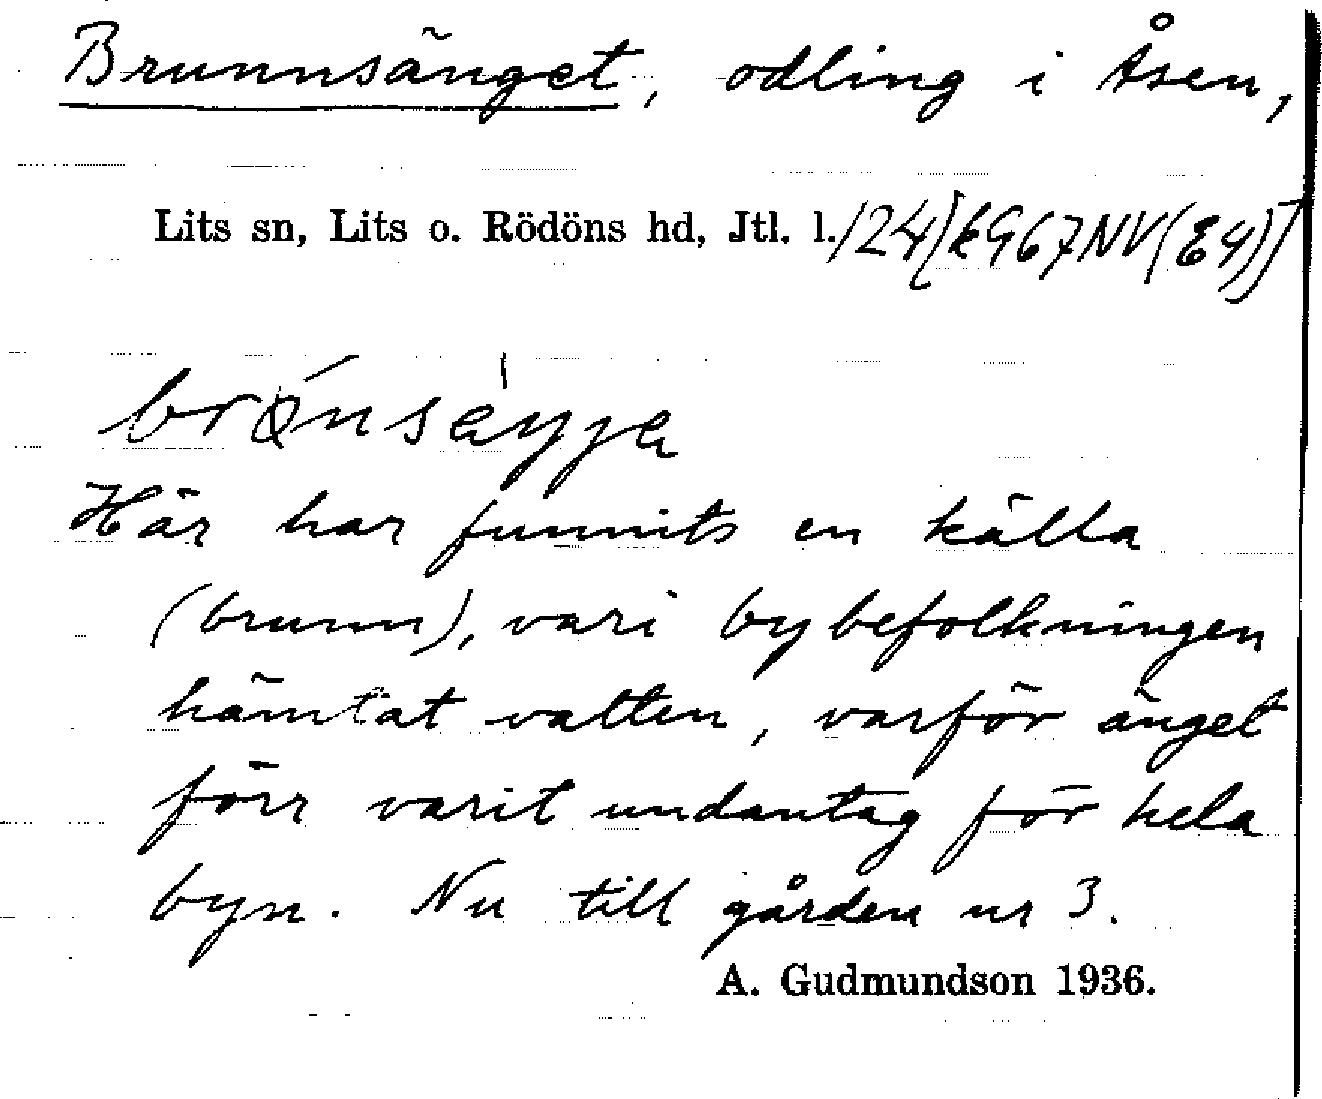 Brunnsänget, odling i Åsen,
Lits sn, Lits o. Rödöns hd, Jtl. l.
Här har funnits en källa
(brunn), vari bybefolkningen
hämtat vatten, varför änget
förr varit undantag för hela
byn. Nu till gården nr 3.
A. Gudmundson 1936.